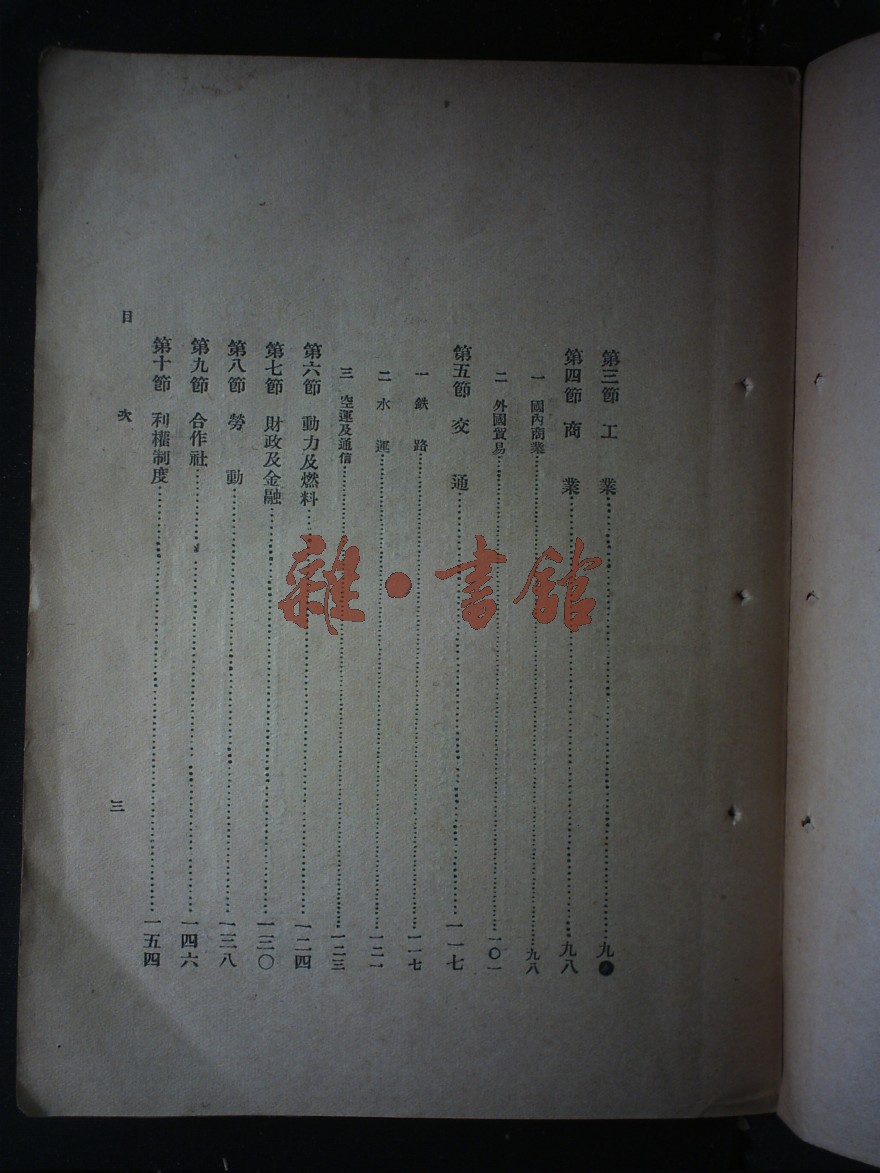 第三節 工業……九
第四節 商業……九八
一 國內商業……九八
二 外國貿易……一〇一
第五節 交通……一一七
一 鉄路……一一七
二 水運……一二一
三 空運及通信……一二三
第六節 動力及燃料……一二四
第七節 財政及金融……一三〇
第八節 勞動……一三八
第九節 合作社……一四六
第十節 利權制度……一五四
目次 三
雜·書館